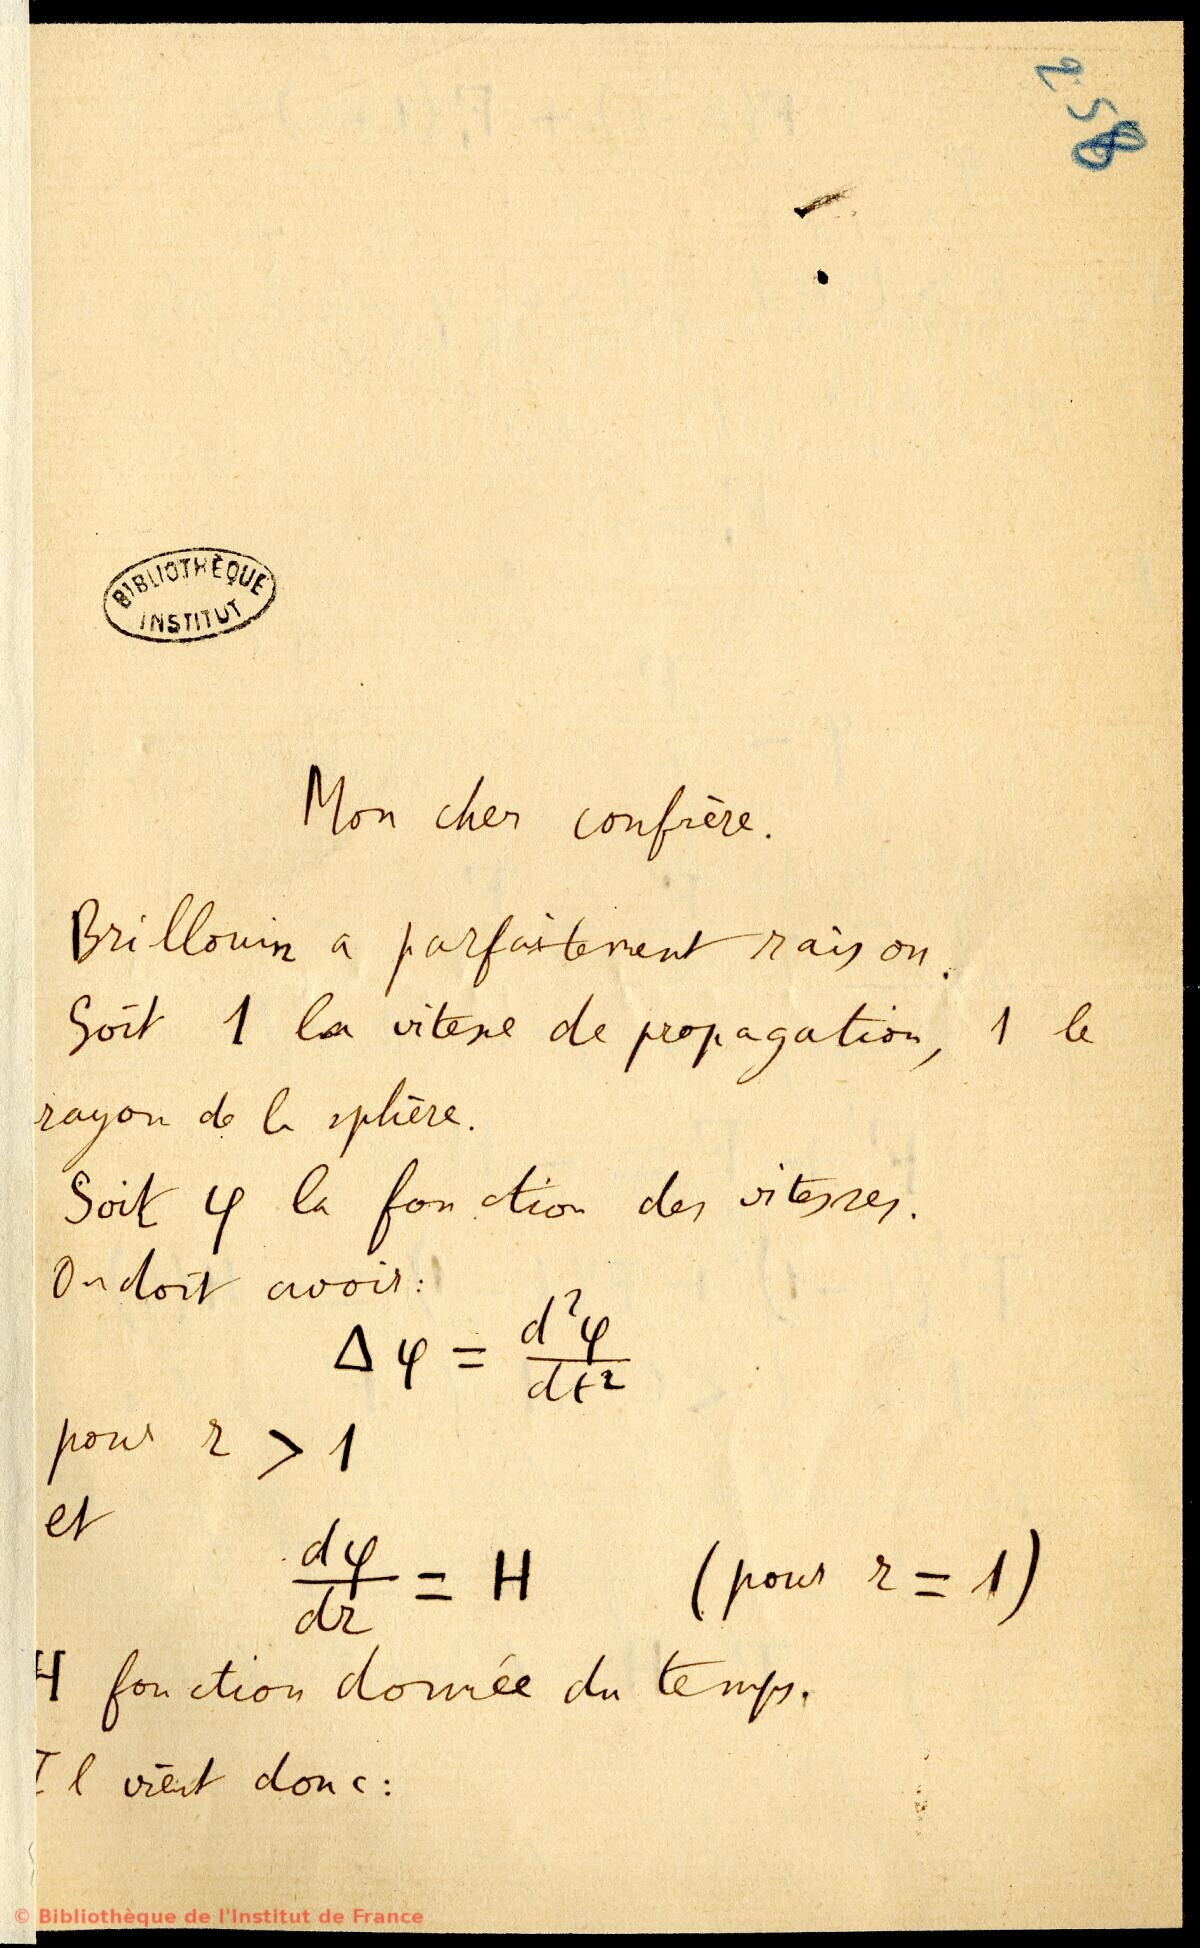 258
BIBLIOTHÈQUE
INSTITUT
Mon cher confrère.
Brillouin a parfaitement raison.
Soit 1 la vitesse de propagation, 1 le
rayon de la sphère.
Soit φ la fonction des vitesses.
On doit avoir:
Δφ = d²φ/dt²
pour r > 1
et
dφ/dr = H (pour r = 1)
H fonction donnée du temps.
Il vient donc:
© Bibliothèque de l'Institut de France